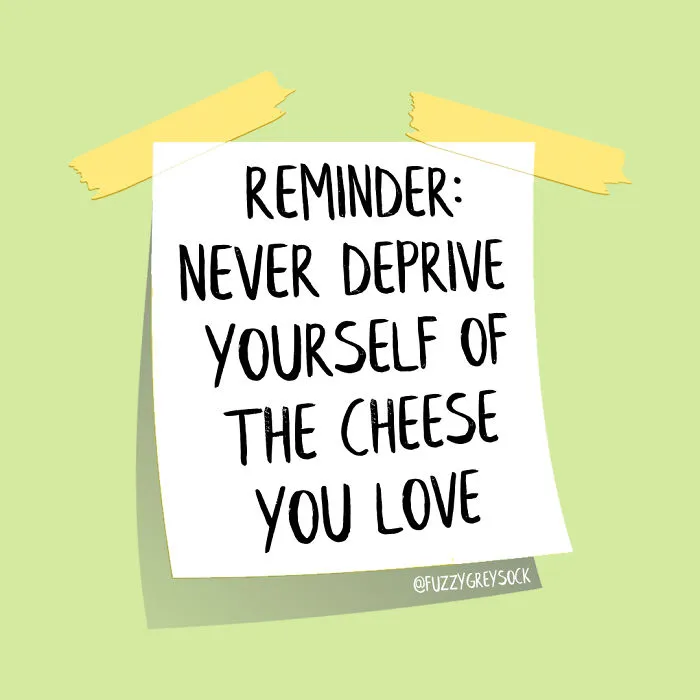 REMINDER:
NEVER DEPRIVE
YOURSELF OF
THE CHEESE
YOU LOVE
@FUZZYGREYSOCK